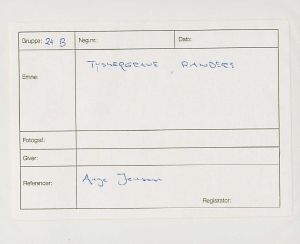 Gruppe: 24 B Neg.nr.: Dato:
Emne: TYSKERGRAVE, RANDERS
Fotograf:
Giver:
Referencer: Aage Jensen
Registrator: